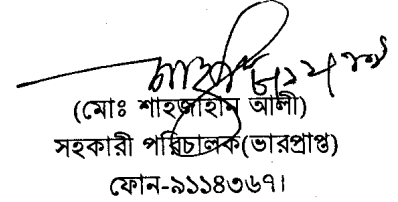 (মোঃ শাহজাহান আলী)
সহকারী পরিচালক(ভারপ্রাপ্ত)
ফোন-৯১১৪৩৬৭।